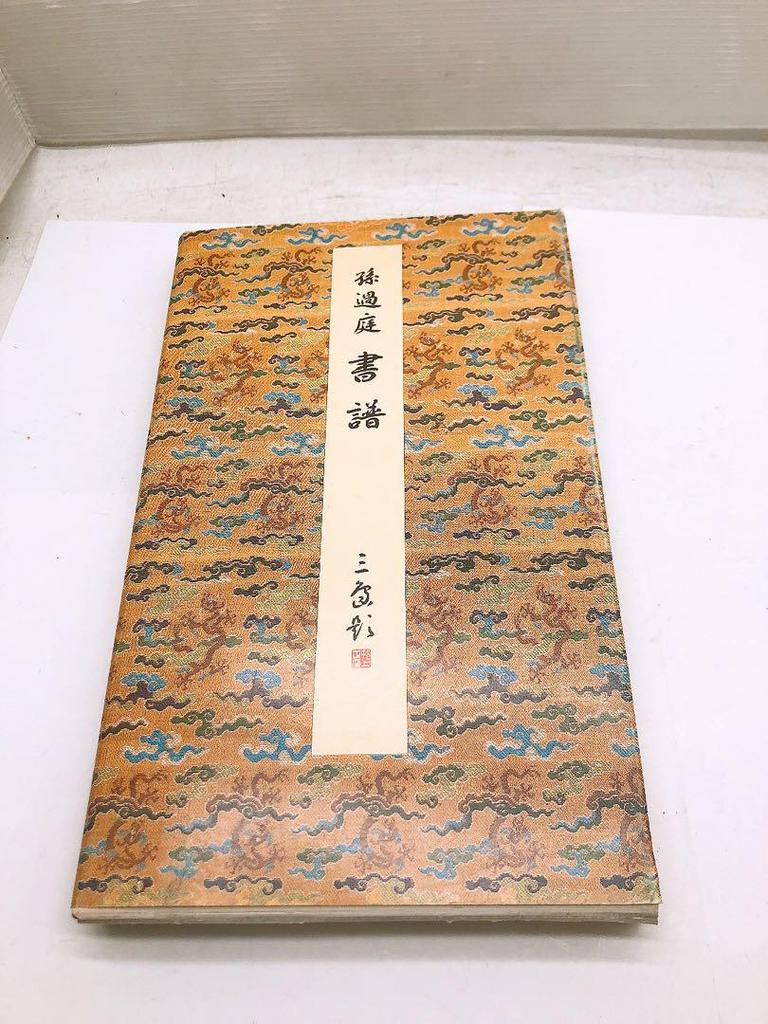 孫過庭 書譜
三島題